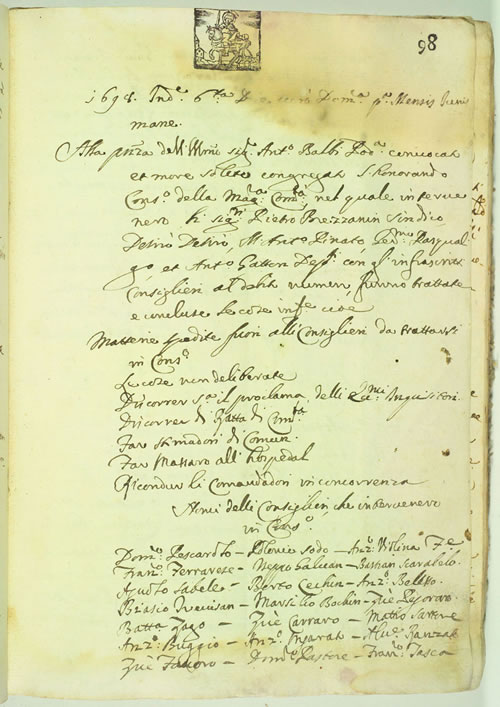 98
1698. Indne 6ta Domca pa Mensis Junij
mane.
Alla pnza dell Illmo sigr Anto Balbi Podà convocat
et more solito congregat l honorando
Conso della Magca Comtà nel quale interve
nero li sigri Pietro Brezzanin Sindico
M. Anto Pinato Germo Pasqual
go et Anto Gatton Depti con gl infrascritti
Consiglieri al debito numero furono trattate
e concluse le cose infte cioè
Matterie spedite fuori alli Consiglieri da trattarsi
in Conso
Le cose non deliberate
Discorrer sa il proclama delli Inquisitori
Discorrer di Ratta di Comtà
Far stimadori di Comun
Far Massaro all hospedal
Ricondur li Comandadori in concorrenza
Nomi delli Consiglieri che intervenero
in Conso
Domco Pascardello – Polonio Sodo – Anzo Violina
Franco Ferrarese – Galvan – Bastian Scarabello
Agustto Sabele – Berto Cechin – Anzo
Biasio Trevisan – Marsilio Bochin – Zuè Pesoraro
Batta Zago – Zuè Carraro – Mattio
Anzo Buggio – Anzo – Alvise Ranzato
Zuè – Domco Pastore – Franco Tasca